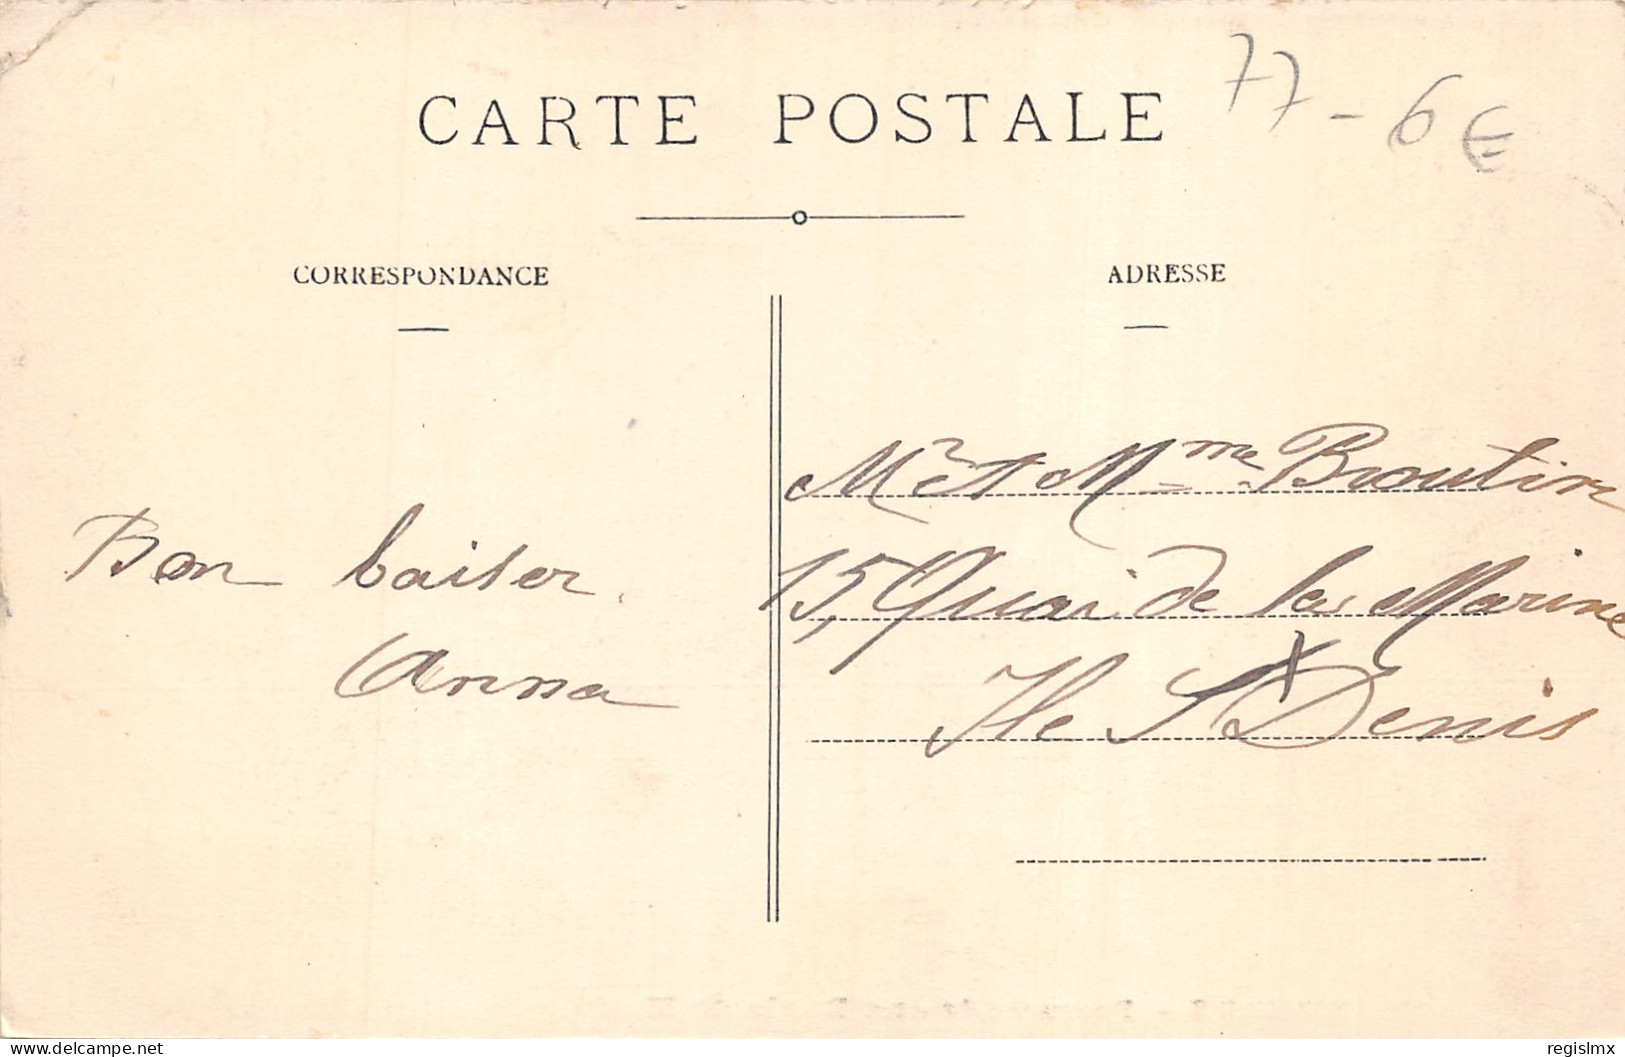 CARTE POSTALE
77 - 6€
CORRESPONDANCE
ADRESSE
Bon baiser.
Anna
Mr et Mme Broutin
15, Quai de la Marine
Ile St Denis
www.delcampe.net
regislmx